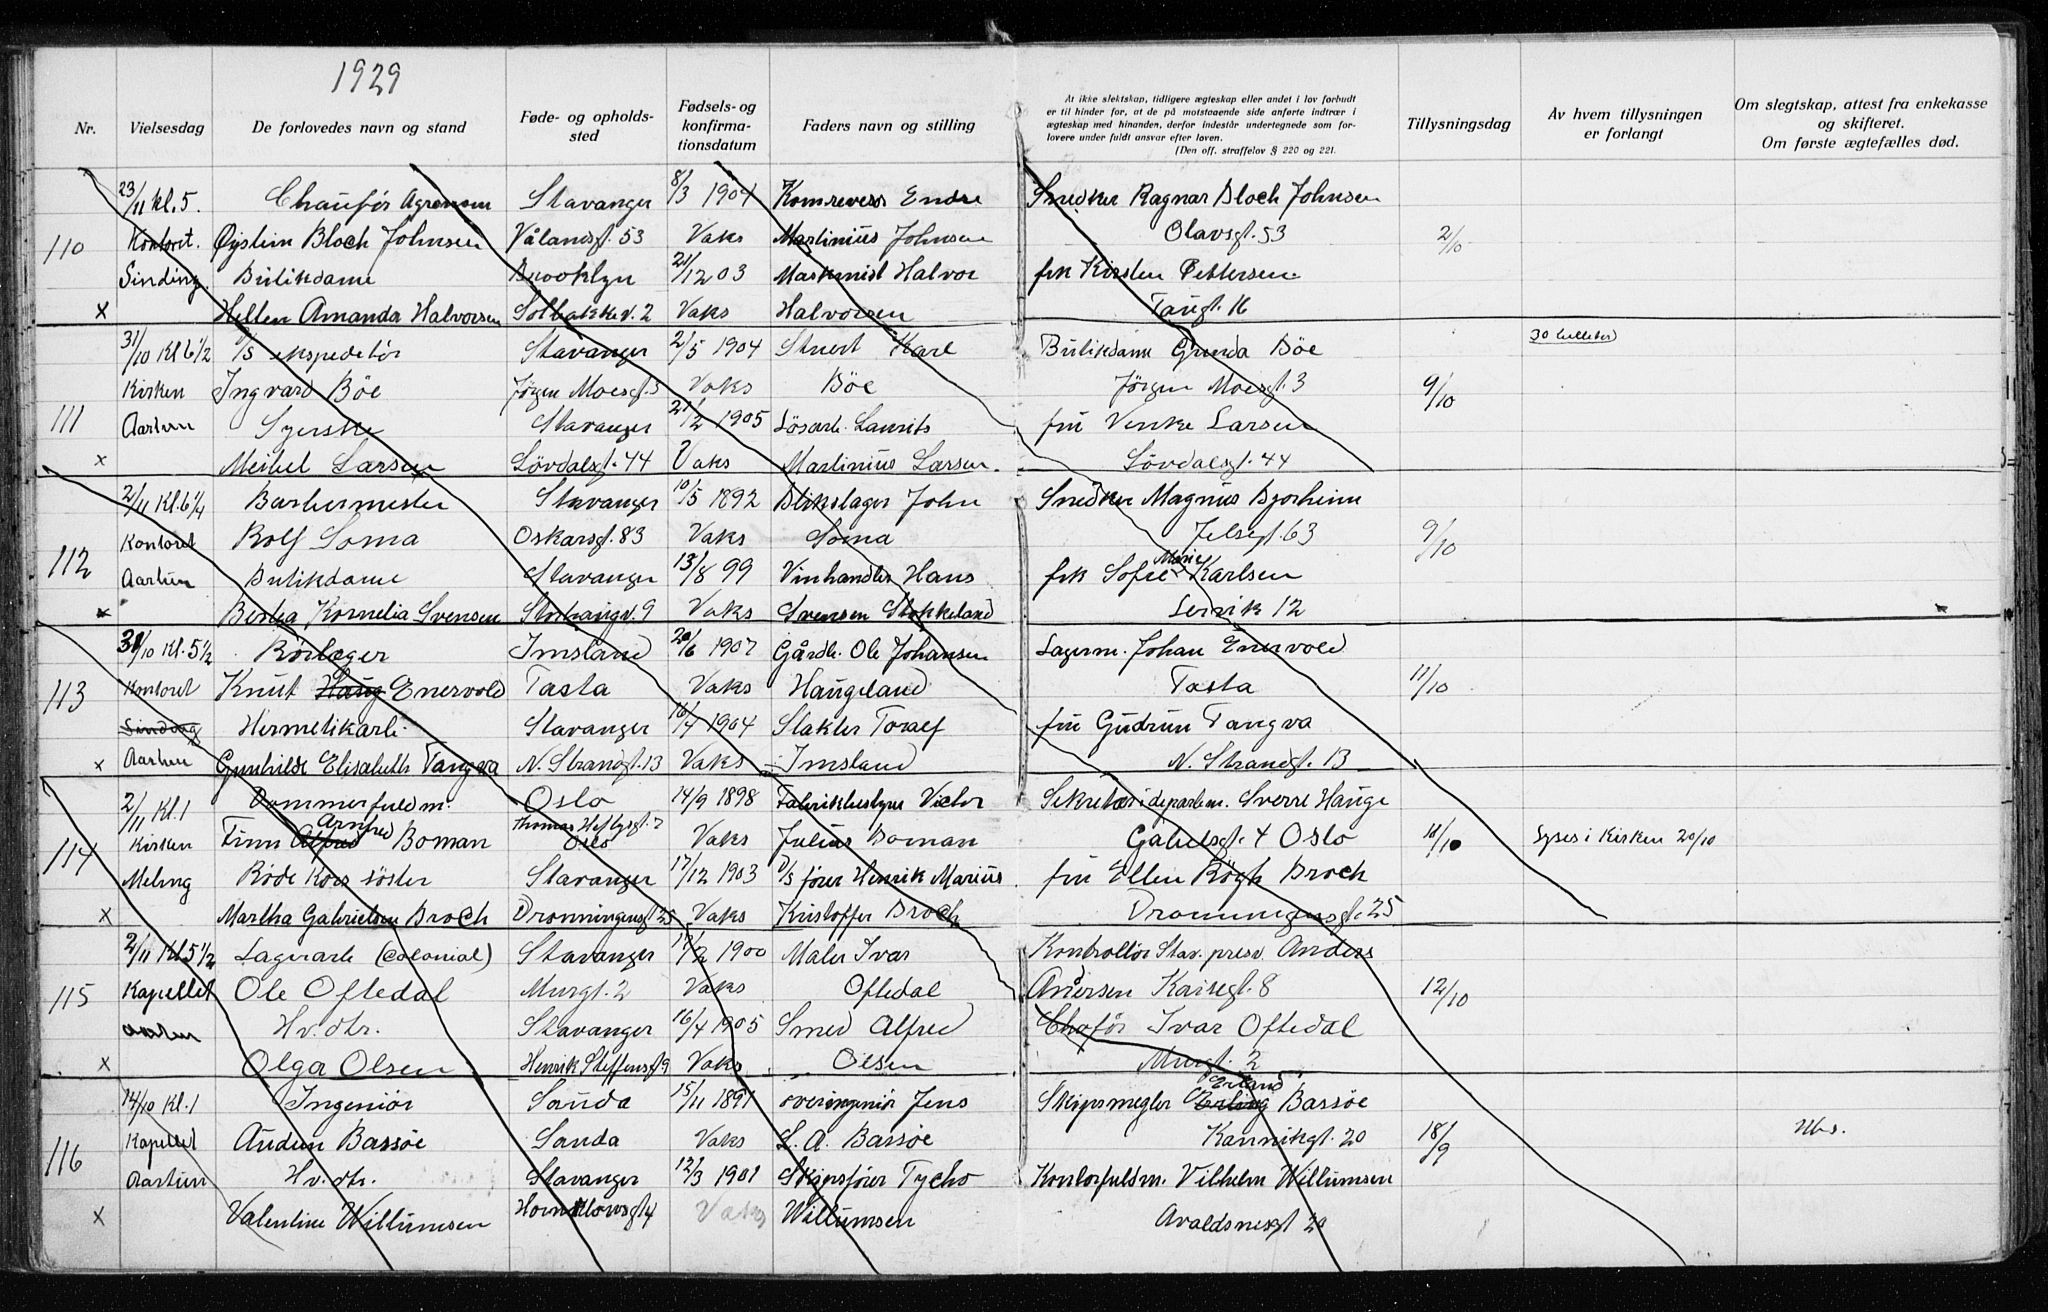 1929
Nr.
Vielsesdag
De forlovedes navn og stand
Føde- og opholds-
sted
Fødsels- og
konfirma-
tionsdatum
Faders navn og stilling
At ikke slektskap, tidligere ægteskap eller andet i lov forbudt
er til hinder for, at de på motstaaende side anførte indtrær i
ægteskap med hinanden, derfor indestår undertegnede som for-
lovere under fuldt ansvar efter loven.
(Den off. straffelov § 220 og 221.
Tillysningsdag
Av hvem tillysningen
er forlangt
Om slegtskap, attest fra enkekasse
og skifteret.
Om første ægtefælles død.
23/11 kl. 5. Chaufør Stavanger 8/3 1904 Endre Snedker Ragnar Bloch Johnsen
110 Kontoret. Øystein Bloch Johnsen Vålandsgt. 53 Vaks Martinius Johnsen Olavsgt. 53 2/10
Sinding. Butikdame Brooklyn 21/12 03 Maskinist Halvor frk Kirsten Pettersen
x Hellen Amanda Halvorsen Solbakkev. 2 Vaks Halvorsen Taugt. 16
31/10 Kl 6 1/2 ekspeditør Stavanger 2/5 1904 Stuert Karl Butikdame Gunda Bøe
Kirken Ingvard Bøe Jørgen Moesgt. 3 Vaks Bøe Jørgen Moesgt. 3 9/10
111 Aarhun Syerske Stavanger 21/2 1905 Løsarb. Laurits frü Venke Larsen
x Meibel Larsen Lövdalsgt. 44 Vaks Martinius Larsen. Lövdalsgt. 44
2/11 Kl. 6 1/4 Barbermester Stavanger 10/5 1892 Blikslager John Snedker Magnus Bjorheim
Kontoret Rolf Soma Oskarsgt. 83 Vaks Soma Jelsegt. 63 9/10
112 Aarhun Butikdame Stavanger 13/8 99 Vinhandler Hans frk Sofie Marie Karlsen
x Berta Kornelia Svensen Storhaugv. 9 Vaks Svensen Stokkeland Lervik 12
31/10 Kl. 5 1/2 Rörlæger Imsland 20/6 1907 Gårdb. Ole Johansen Lagerm. Johan Enervold
113 Kontoret Knut Haug Enervold Tasta Vaks Haugeland Tasta 11/10
Sinding Hermetikarb. Stavanger 16/4 1904 Slakter Toralf frü Gudrun Tangva
x Aarhun Gunhilde Elisabeth Tangva N. Strandgt. 13 Vaks Imsland N. Strandgt. 13
2/11 Kl. 1 Dommerfuldm. Oslo 14/9 1898 Fabrikbestyrer Victor Sekretær i departem. Sverre Hauge
114 Kirken Finn Alfred Arnfred Boman Thomas Heftysgt. 2 Oslo Vaks Julius Boman Gabelsgt. 4 Oslo 18/10 Lyses i Kirken 20/10
Meling Røde Kors søster Stavanger 17/12 1903 D/S fører Henrik Marius frü Ellen Rögh Broch
x Martha Gabrielsen Broch Dronningensgt 25 Vaks Kristoffer Broch Dronningensgt. 25
2/11 Kl 5 1/2 Lagerarb (colonial) Stavanger 17/2 1900 Maler Ivar Kontrollör Stav. presv. Anders
115 Kapellet Ole Oftedal Murgt. 2 Vaks Oftedal Andersen Kaisegt. 8 12/10
Hv. dtr. Stavanger 16/4 1905 Smed Alfred Chaför Ivar Oftedal
x Olga Olsen Henrik Steffensgt 9 Vaks Olsen Murgt. 2
14/10 Kl. 1 Ingeniör Sauda 15/11 1891 overingeniör Jens Skipsmegler Erling Erland Bassøe
116 Kapellet Audun Bassøe Sauda Vaks L. A. Bassøe Kannikgt. 20 18/9
Aarhun Hv. dtr. Stavanger 12/3 1901 Skipsfører Tycho Kontorfuldm. Vilhelm Willumsen
x Valentine Willumsen Vaks Willumsen Avaldsnesgt 20